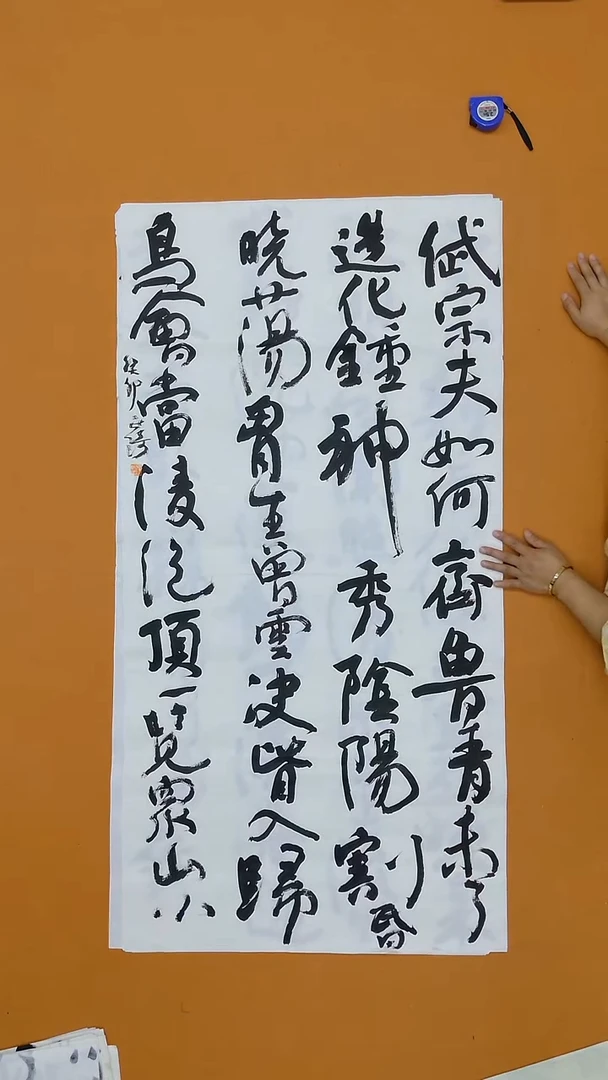 岱宗夫如何齊魯青未了
造化鍾神秀陰陽割昏
曉蕩胷生曾雲決眥入歸
鳥會當凌絕頂一覽眾山小
癸卯